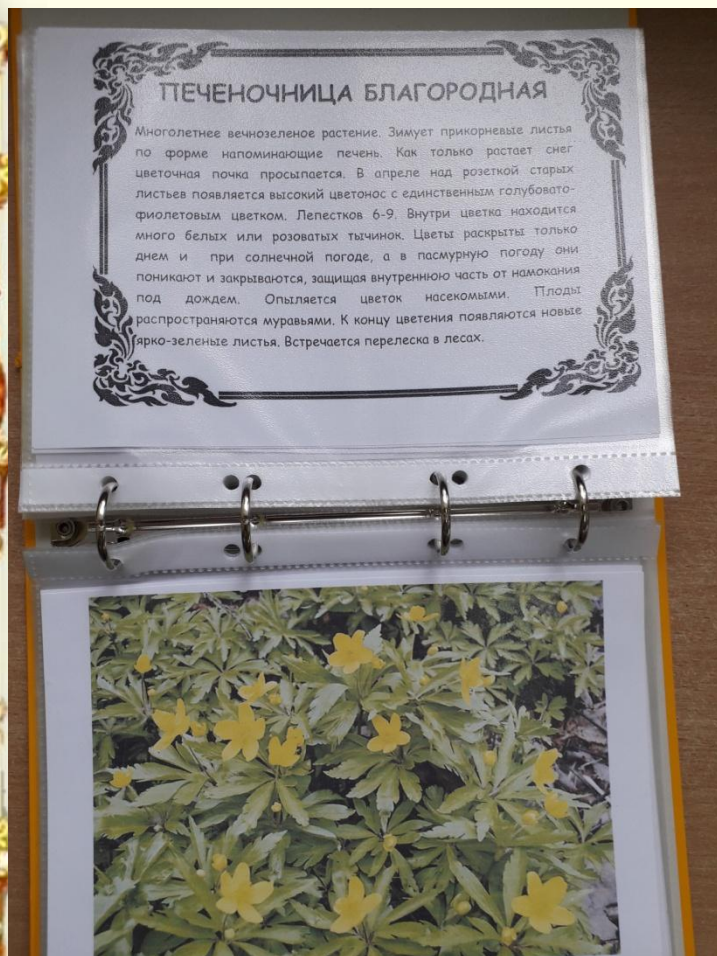 ПЕЧЕНОЧНИЦА БЛАГОРОДНАЯ
Многолетнее вечнозеленое растение. Зимует прикорневые листья
по форме напоминающие печень. Как только растает снег
цветочная почка просыпается. В апреле над розеткой старых
листьев появляется высокий цветонос с единственным голубовато-
фиолетовым цветком. Лепестков 6-9. Внутри цветка находится
много белых или розоватых тычинок. Цветы раскрыты только
днем и при солнечной погоде, а в пасмурную погоду они
поникают и закрываются, защищая внутреннюю часть от намокания
под дождем. Опыляется цветок насекомыми. Плоды
распространяются муравьями. К концу цветения появляются новые
ярко-зеленые листья. Встречается перелеска в лесах.